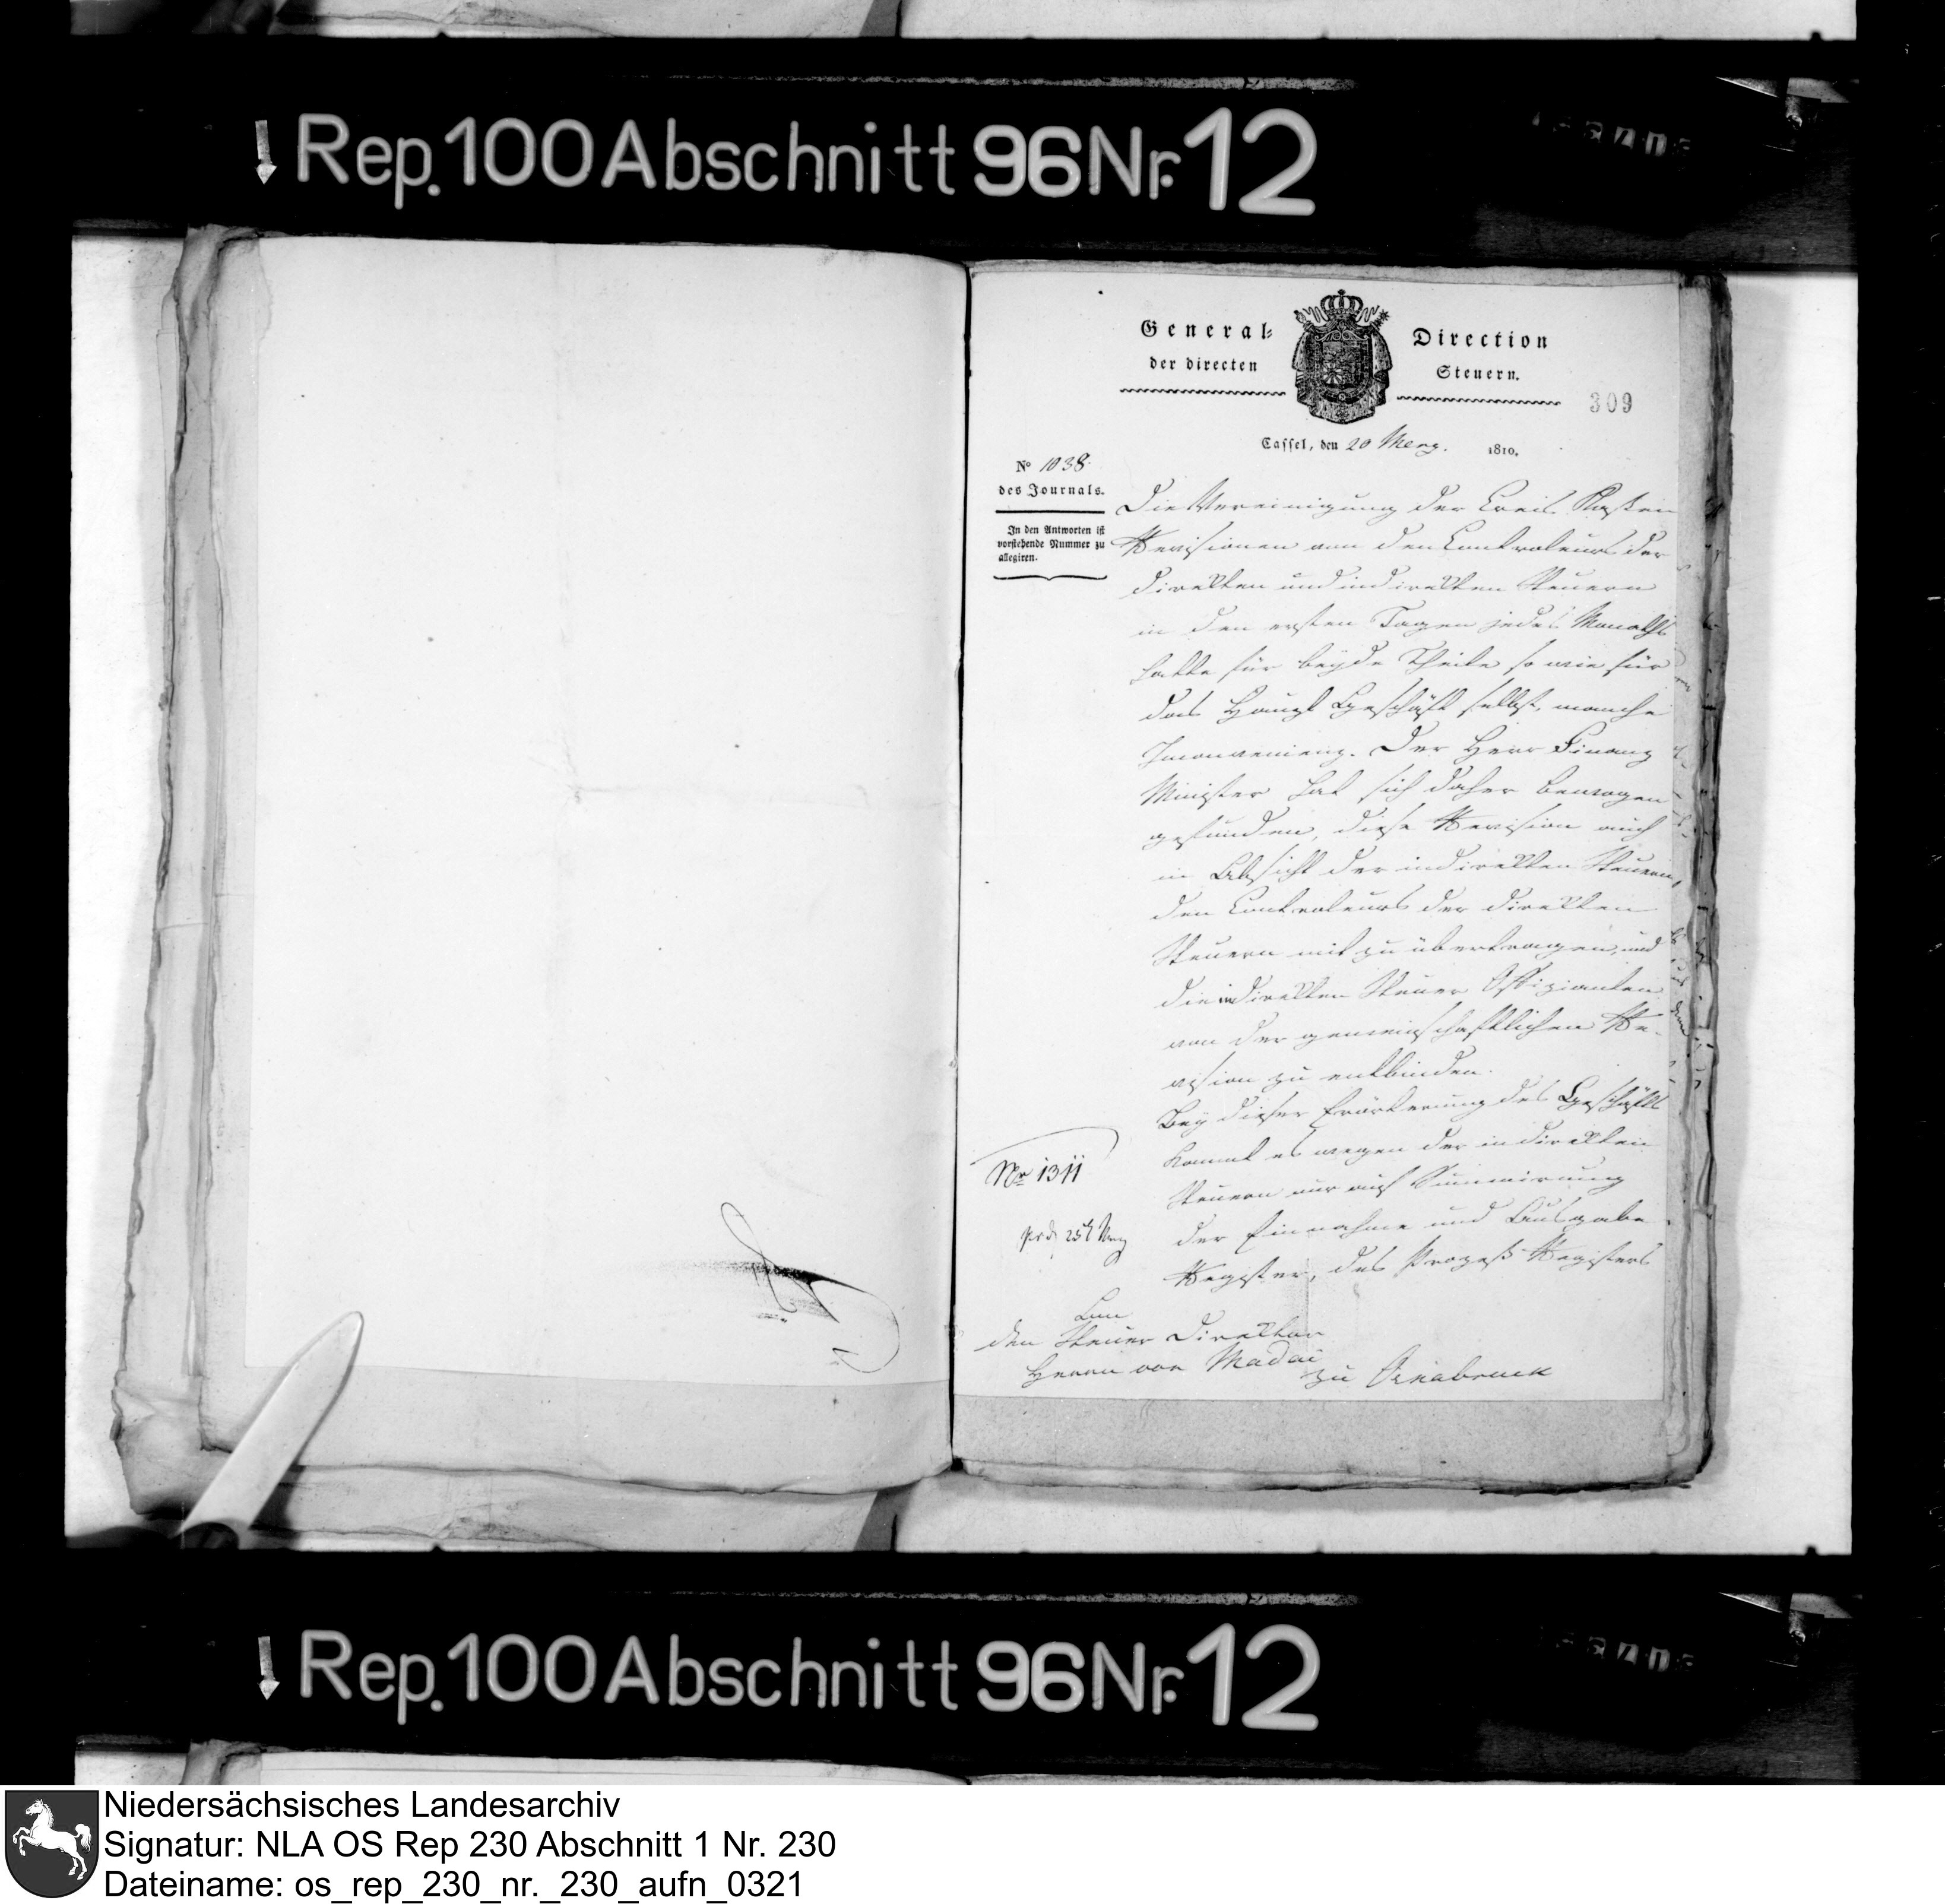 Rep. 100 Abschnitt 96 Nr. 12
General- Direction
der directen Steuern.
309
Cassel, den 20 Merz. 1810.
No 1038.
des Journals.
In den Antworten ist
vorstehende Nummer zu
allegiren.
Die Vereinigung der Creis Kassen
Revisionen von den Controleurs der
direkten und indirekten Steuern
in den ersten Tagen jedes Monaths
hatte für beyde Theile so wie für
das Haupt Geschäft selbst, manche
Inconvenienz. Der Herr Finanz
Minister hat sich daher bewogen
gefunden, diese Revision auch
in Absicht der indirekten Steuern,
den Controleurs der direkten
Steuern mit zu übertragen, und
die indirekten Steuer Offizianten
von der gemeinschaftlichen Re-
vision zu entbinden.
Bey dieser Erörterung des Geschäfts
kommt es wegen der indirekten
Steuern nur auf Summirung
der Einnahme und Ausgabe
Register, des Prozeß Registers
Nr 1311
den Steuer Direktor
Herrn von Madai
zu Osnabruck
Rep. 100 Abschnitt 96 Nr. 12
Niedersächsisches Landesarchiv
Signatur: NLA OS Rep 230 Abschnitt 1 Nr. 230
Dateiname: os_rep_230_nr._230_aufn_0321